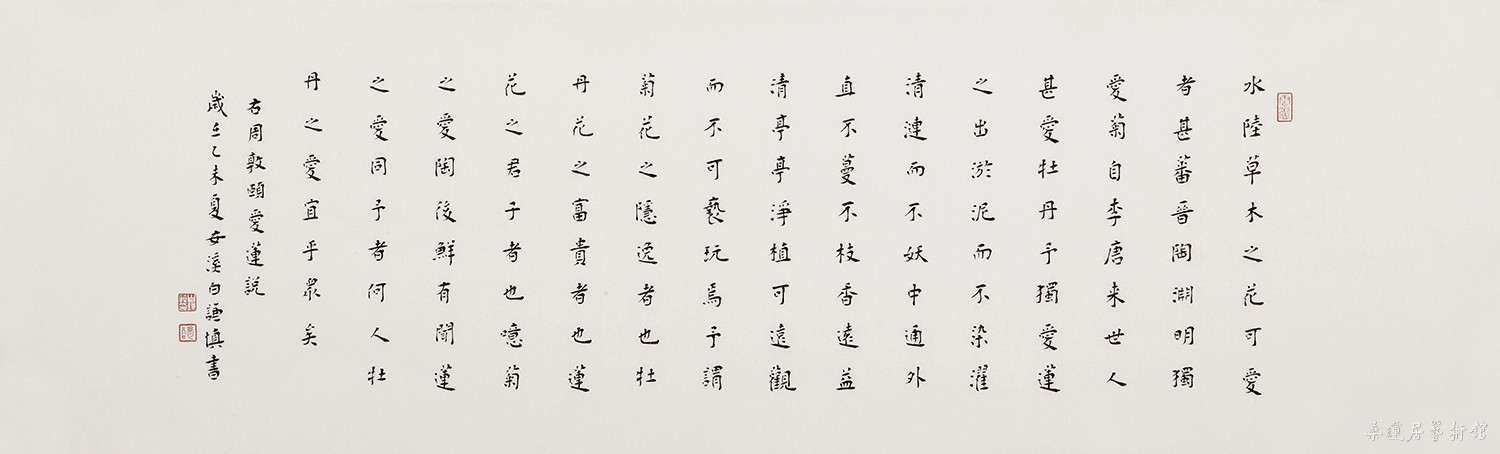 水陸草木之花可愛
者甚蕃晉陶淵明獨
愛菊自李唐来世人
甚愛牡丹予獨愛蓮
之出淤泥而不染濯
清漣而不妖中通外
直不蔓不枝香遠益
清亭亭淨植可遠觀
而不可褻玩焉予謂
菊花之隱逸者也牡
丹花之富貴者也蓮
花之君子者也噫菊
之愛陶後鮮有聞蓮
之愛同予者何人牡
丹之愛宜乎眾矣
右周敦頤愛蓮説
歲在乙未夏安溪白謙慎書
藝術館